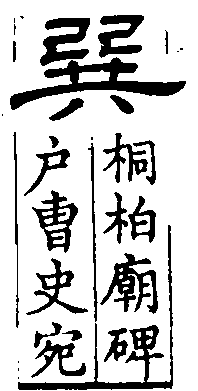 巽
桐柏廟碑
户曹史宛